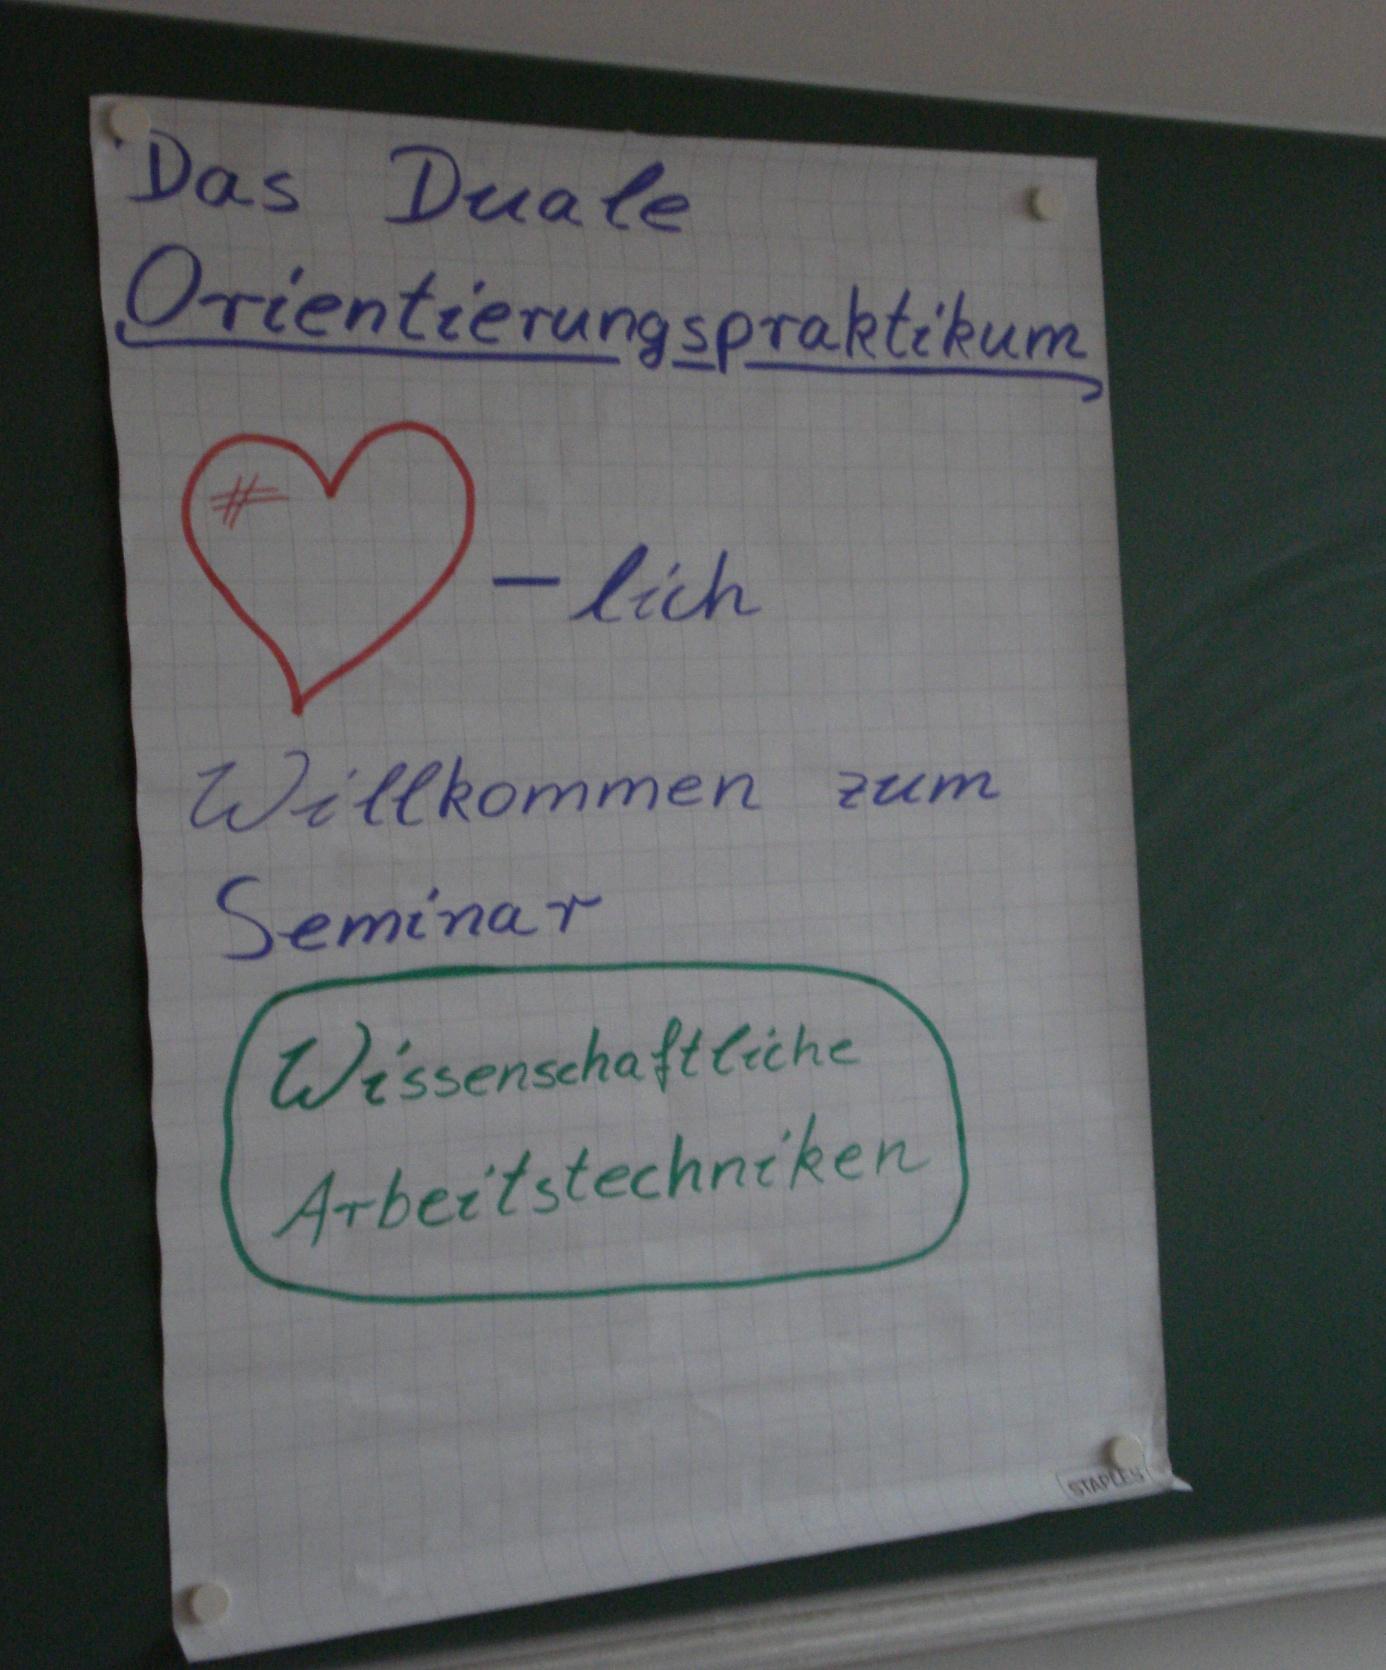 Das Duale
Orientierungspraktikum
-lich
Willkommen zum
Seminar
Wissenschaftliche
Arbeitstechniken
STAPLES